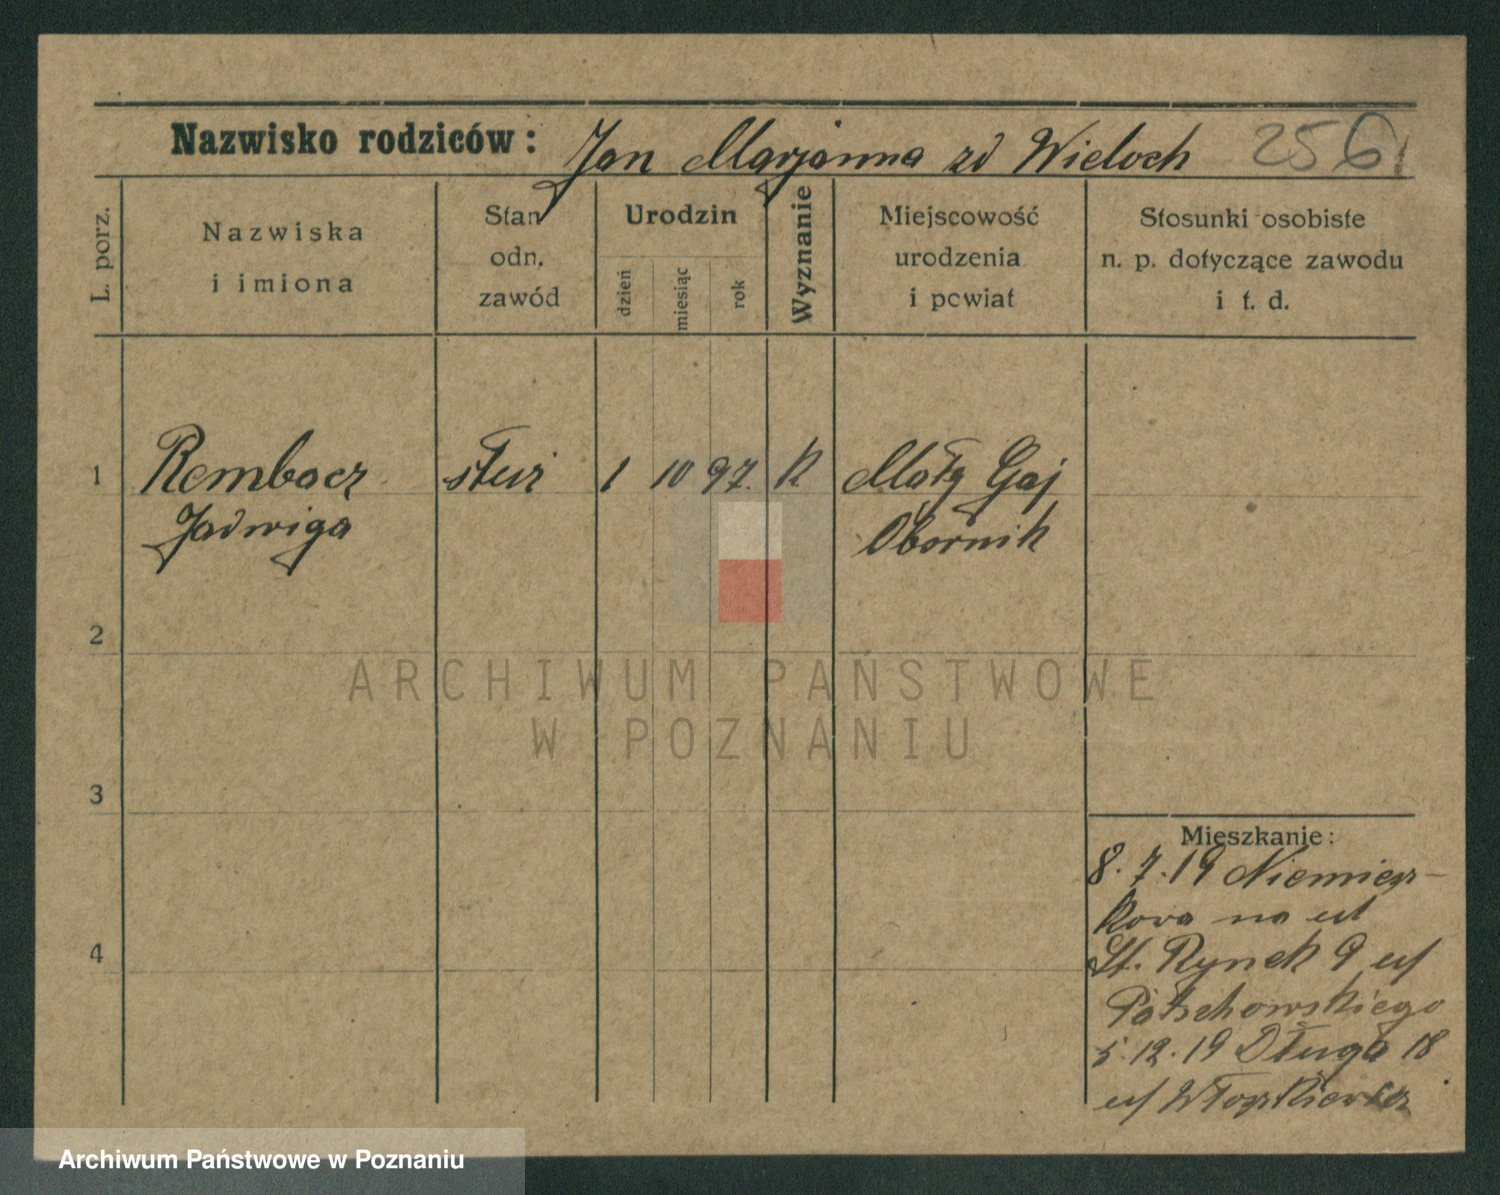 Nazwisko rodziców: Jan Marjanna zd Wieloch 256
L. porz.
Nazwiska
i imiona
Stan
odn.
zawód
Urodzin
dzień
miesiąc
rok
Wyznanie
Miejscowość
urodzenia
i powiat
Stosunki osobiste
n. p. dotyczące zawodu
i t. d.
1 Rembacz służ 1 10 97. k Mały Gaj
Jadwiga Obornik
2
3
4
Mieszkanie:
8.7.19
na
St. Rynek 9
5.12.19 Długa 18
ARCHIWUM PAŃSTWOWE
W POZNANIU
Archiwum Państwowe w Poznaniu